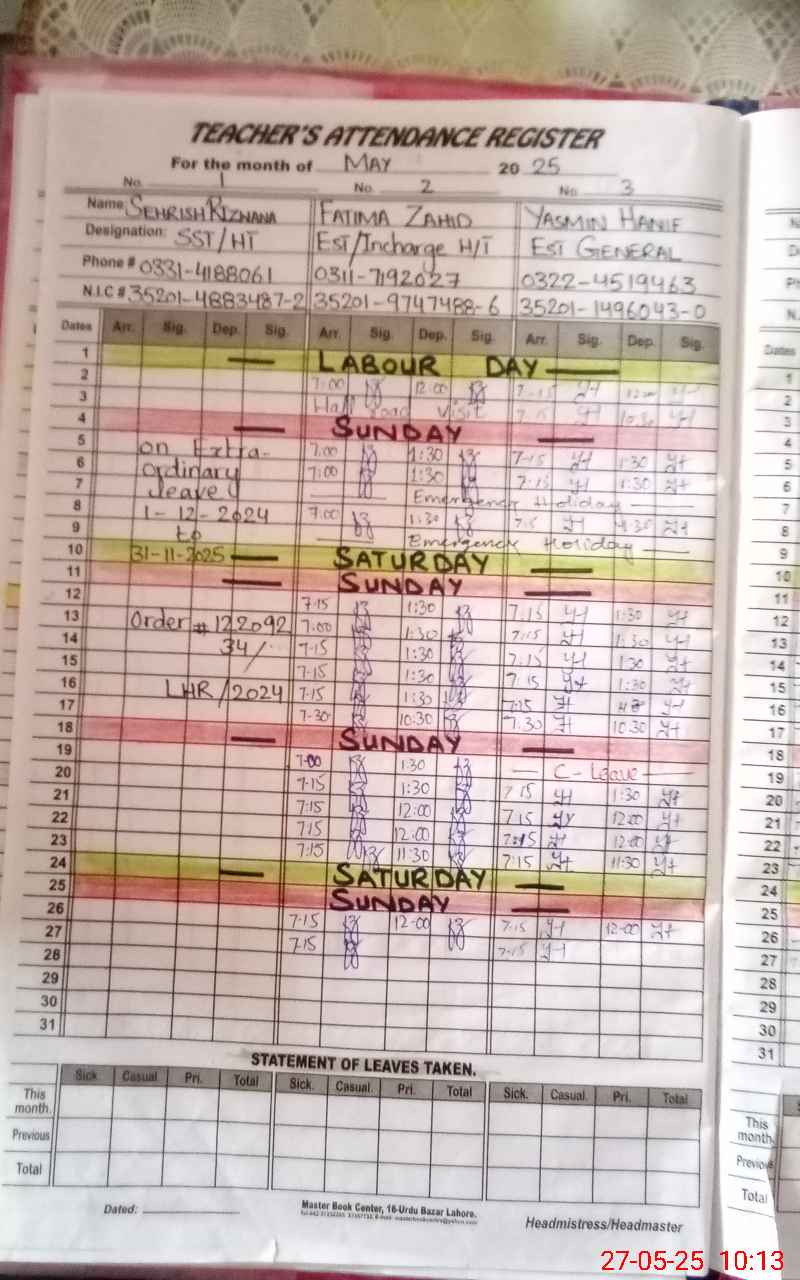 TEACHER'S ATTENDANCE REGISTER
For the month of MAY 20 25
No. 1 No. 2 No. 3
Name: SEHRISH RIZWANA FATIMA ZAHID YASMIN HANIF
Designation: SST/HT EST/Incharge H/T EST GENERAL
Phone # 0331-4188061 0311-7192027 0322-4519463
N.I.C # 35201-4883487-2 35201-9747488-6 35201-1496043-0
Dates Arr. Sig. Dep. Sig. Arr. Sig. Dep. Sig. Arr. Sig. Dep. Sig.
1 LABOUR DAY
2 7:00 12:00 7-15
3 Hall Road Visit 7-15 10:30
4 SUNDAY
5 on Extra- 7:00 1:30 7-15 1:30
6 ordinary 7:00 1:30 7-15 1:30
7 leave Emergency Holiday
8 1-12-2024 7:00 1:30
9 to Emergency Holiday
10 31-11-2025 SATURDAY
11 SUNDAY
12 7-15 1:30 7:15 1:30
13 Order # 122092 7:00 1:30 7:15 1:30
14 34/ 7-15 1:30 7:15 1:30
15 7-15 1:30 7:15 1:30
16 LHR/2024 7-15 1:30 7:25
17 7-30 10:30 7:30 10:30
18 SUNDAY
19 7-00 1:30 C-Leave
20 7-15 1:30 7 15 1:30
21 7:15 12:00 7 15 12:00
22 7:15 12:00 7:15 12:00
23 7:15 11:30 7:15 11:30
24 SATURDAY
25 SUNDAY
26 7-15 12-00 7-15 12-00
27 7-15 7-15
28
29
30
31
STATEMENT OF LEAVES TAKEN.
Sick. Casual Pri. Total Sick. Casual. Pri. Total Sick. Casual. Pri. Total
This month.
Previous
Total
Dated:
Master Book Center, 16-Urdu Bazar Lahore.
Headmistress/Headmaster
Dates
1
2
3
4
5
6
7
8
9
10
11
12
13
14
15
16
17
18
19
20
21
22
23
24
25
26
27
28
29
30
31
This month
Previous
Total
27-05-25 10:13